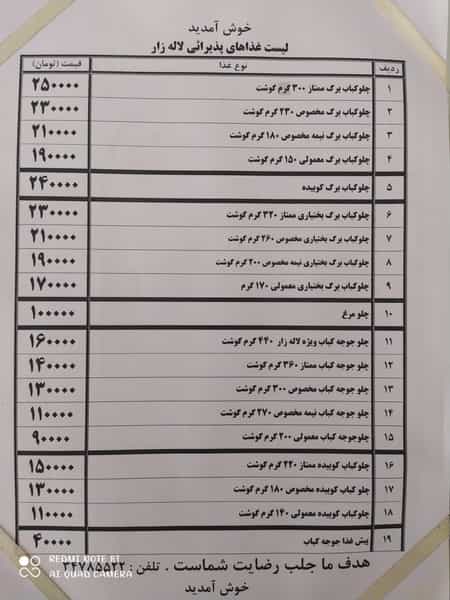 خوش آمدید
لیست غذاهای پذیرائی لاله زار
ردیف نوع غذا قیمت (تومان)
۱ چلوکباب برگ ممتاز ۳۰۰ گرم گوشت ۲۵۰۰۰۰
۲ چلوکباب برگ مخصوص ۲۳۰ گرم گوشت ۲۳۰۰۰۰
۳ چلوکباب برگ نیمه مخصوص ۱۸۰ گرم گوشت ۲۱۰۰۰۰
۴ چلوکباب برگ معمولی ۱۵۰ گرم گوشت ۱۹۰۰۰۰
۵ چلوکباب برگ کوبیده ۲۴۰۰۰۰
۶ چلوکباب برگ بختیاری ممتاز ۳۲۰ گرم گوشت ۲۳۰۰۰۰
۷ چلوکباب برگ بختیاری مخصوص ۲۶۰ گرم گوشت ۲۱۰۰۰۰
۸ چلوکباب برگ بختیاری نیمه مخصوص ۲۰۰ گرم گوشت ۱۹۰۰۰۰
۹ چلوکباب برگ بختیاری معمولی ۱۷۰ گرم ۱۷۰۰۰۰
۱۰ چلو مرغ ۱۰۰۰۰۰
۱۱ چلو جوجه کباب ویژه لاله زار ۴۴۰ گرم گوشت ۱۶۰۰۰۰
۱۲ چلو جوجه کباب ممتاز ۳۶۰ گرم گوشت ۱۴۰۰۰۰
۱۳ چلو جوجه کباب مخصوص ۳۰۰ گرم گوشت ۱۳۰۰۰۰
۱۴ چلو جوجه کباب نیمه مخصوص ۲۷۰ گرم گوشت ۱۱۰۰۰۰
۱۵ چلوجوجه کباب معمولی ۲۰۰ گرم گوشت ۹۰۰۰۰
۱۶ چلو کباب کوبیده ممتاز ۲۲۰ گرم گوشت ۱۵۰۰۰۰
۱۷ چلو کباب کوبیده مخصوص ۱۸۰ گرم گوشت ۱۳۰۰۰۰
۱۸ چلو کباب کوبیده معمولی ۱۴۰ گرم گوشت ۱۱۰۰۰۰
۱۹ پیش غذا جوجه کباب ۴۰۰۰۰
هدف ما جلب رضایت شماست . تلفن : ۳۴۷۸۵۵۲۲
خوش آمدید
REDMI NOTE 8T
AI QUAD CAMERA